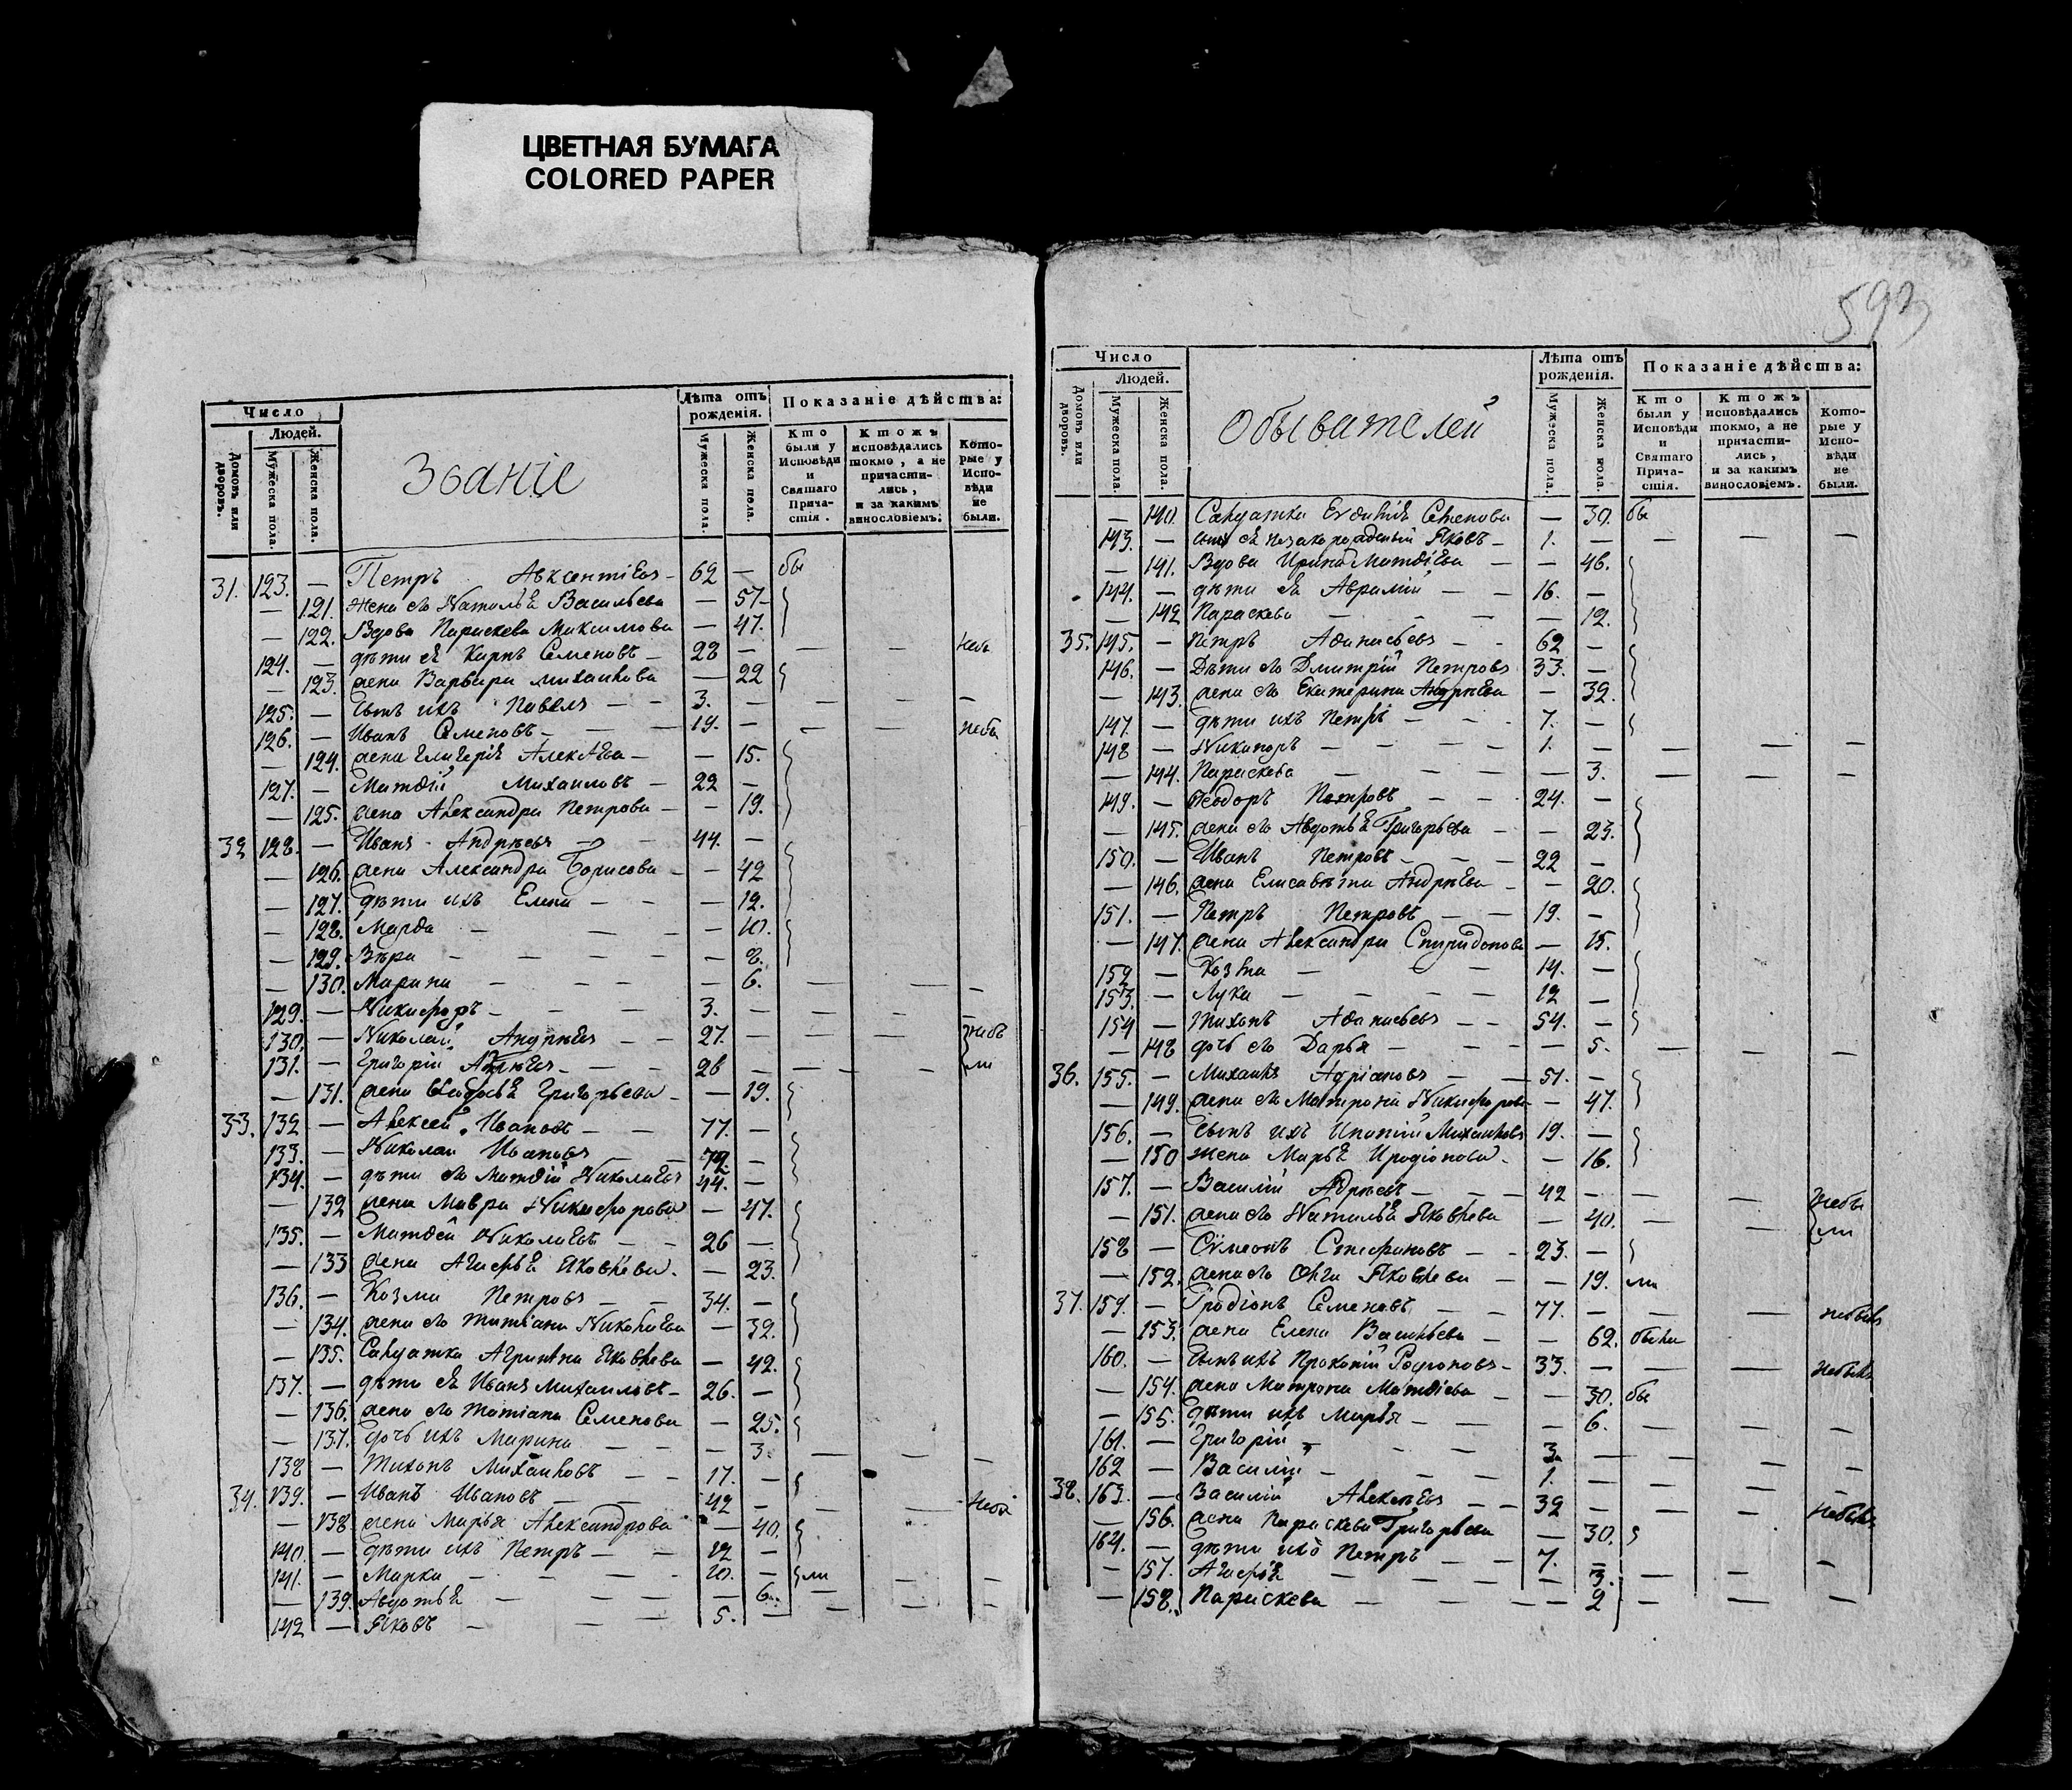 ЦВЕТНАЯ БУМАГА
COLORED PAPER
593
Число
Людей.
Домовъ или дворовъ.
Мужеска пола.
Женска пола.
Званіе
Лѣта отъ рожденія.
Мужеска пола.
Женска пола.
Показаніе дѣйства:
Кто были у Исповѣди и Святаго Прича-стія.
Ктожъ исповѣдались токмо, а не причасти-лись, и за какимъ винословіемъ.
Кото-рые у Испо-вѣди не были.
31. 123. — Петръ Авксентіевъ — 62 — бы
— 121. жена его Наталья Васильева — 57
— 122. Вдова Параскева Максимова — 47.
124. — дѣти ея Карпъ Семеновъ — 28 — — —
— 123. жена Варвара Михайлова — 22
125. — Сынъ ихъ Павелъ — — 3. — — — —
126. — Иванъ Семеновъ — — 19. — — —
— 124. жена Гликерія Алексѣева — — 15.
127. — Матвій Михайловъ — 22 —
— 125. жена Александра Петрова — — 19.
32 128. — Иванъ Андреевъ — — 44. —
— 126. жена Александра Борисова — — 42
— 127. дѣти ихъ Елена — — — 12.
— 128. Марфа — — — — 10.
— 129. Вѣра — — — — — 8.
— 130. Марина — — — — — 6. — — —
129. — Никифоръ — — — 3. — — — —
130. — Николай Андреевъ — — 27. — — —
131. — Григорій Андреевъ — — 26 — — — — ли
— 131. жена Григорьева — — 19.
33. 132 — Алексей Ивановъ — — 77. —
133. — Николай Ивановъ — 72 —
134. — дѣти его Матвій Николаевъ 44. —
— 132 жена Мавра Никифорова — 47.
135. — Матвей Николаевъ — — 26 —
— 133 жена Агафья Яковлева. — 23.
136. — Козма Петровъ — — 34. —
— 134. жена его Татіана Николаева — 32.
— 135. Салдатка Агрипина Яковлева — 42.
137. — дѣти ея Иванъ Михайловъ — 26. —
— 136. жена его Татіана Семенова — 25.
— 137. дочь ихъ Марина — — — 3. — — —
138 — Тихонъ Михайловъ — — 17. —
34. 139. — Иванъ Ивановъ — — 42 — — —
— 138. жена Марья Александрова — 40.
140. — дѣти ихъ Петръ — — 12 —
141. — Марка — — — — 10. — ли
— 139. Авдотья — — — — 6. — — —
142 — Яковъ — — — 5. — — — —
Число
Людей.
Домовъ или дворовъ.
Мужеска пола.
Женска пола.
Обывателей
Лѣта отъ рожденія.
Мужеска пола.
Женска пола.
Показаніе дѣйства:
Кто были у Исповѣди и Святаго Прича-стія.
Ктожъ исповѣдались токмо, а не причасти-лись, и за какимъ винословіемъ.
Кото-рые у Испо-вѣди не были.
— 140. Салдатка Семенова — 30. бы
143. — сынъ ея Яковъ — 1. — — — —
— 141. Вдова Ирина Матвіева — — 46.
144. — дѣти ея Аврамій — — 16. —
— 142 Параскева — — — — 12.
35. 145. — Петръ Афанасьевъ — — 62 —
146. — Дѣти его Дмитрій Петровъ 33. —
— 143. жена его Екатерина Андреева — 32.
147. — дѣти ихъ Петръ — — 7. —
148 — Никаноръ — — — — 1. — — — —
— 144. Параскева — — — — 3. — — —
149. — Феодоръ Петровъ — — 24. —
— 145. жена его Авдотья Григорьева — — 23.
150. — Иванъ Петровъ — — — 22 —
— 146. жена Елисавета Андреева — — 20.
151. — Петръ Петровъ — — 19. —
— 147. жена Александра Спиридонова — 15.
152 — Козма — — — 14. —
153. — Лука — — — — 12 —
154 — Тихонъ Афанасьевъ — — 54. —
— 148 дочь его Дарья — — — — 5. — — —
36. 155. — Михаилъ Адріановъ — — 51. —
— 149. жена его Матрона Никифорова — 47.
156. — Сынъ ихъ Ипатій Михайловъ 19. —
— 150 жена Марья Иродіонова — — 16.
157. — Василій Андреевъ — — — 42 — — —
— 151. жена его Наталья Яковлева — 40. — — ли
158 — Сѵмеонъ Стефановъ — — 23. —
— 152. жена его Яковлева — — 19. ли
37. 159. — Иродіонъ Семеновъ — — 77. — — — небылъ
— 153. жена Елена Васильева — — 62. была
160. — Сынъ ихъ Прокопій Родіоновъ — 33. — — — небылъ
— 154. жена Матрона Матвіева — — 30. бы
— 155. дѣти ихъ Марья — — — 6. — — —
161. — Григорій — — — — 3. — — — —
162 — Василій — — — — 1. — — — —
38. 163. — Василій Алексеевъ — — 32 — — — небылъ
— 156. жена Параскева Григорьева — 30.
164. — дѣти ихъ Петръ — — 7. —
— 157. Агафья — — — — 3. — — —
— 158. Параскева — — — — 2 — — —